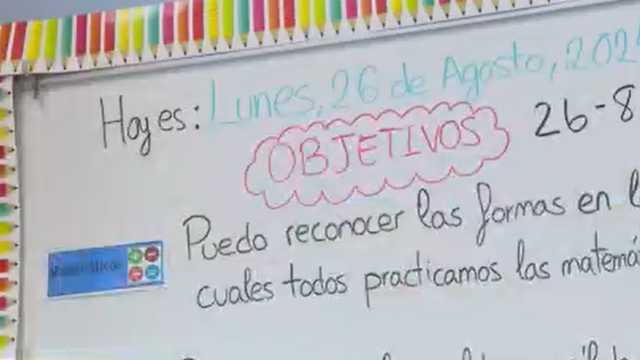 Hoy es: Lunes, 26 de Agosto, 202
OBJETIVOS 26-8
Puedo reconocer las formas en l
cuales todos practicamos las matemá